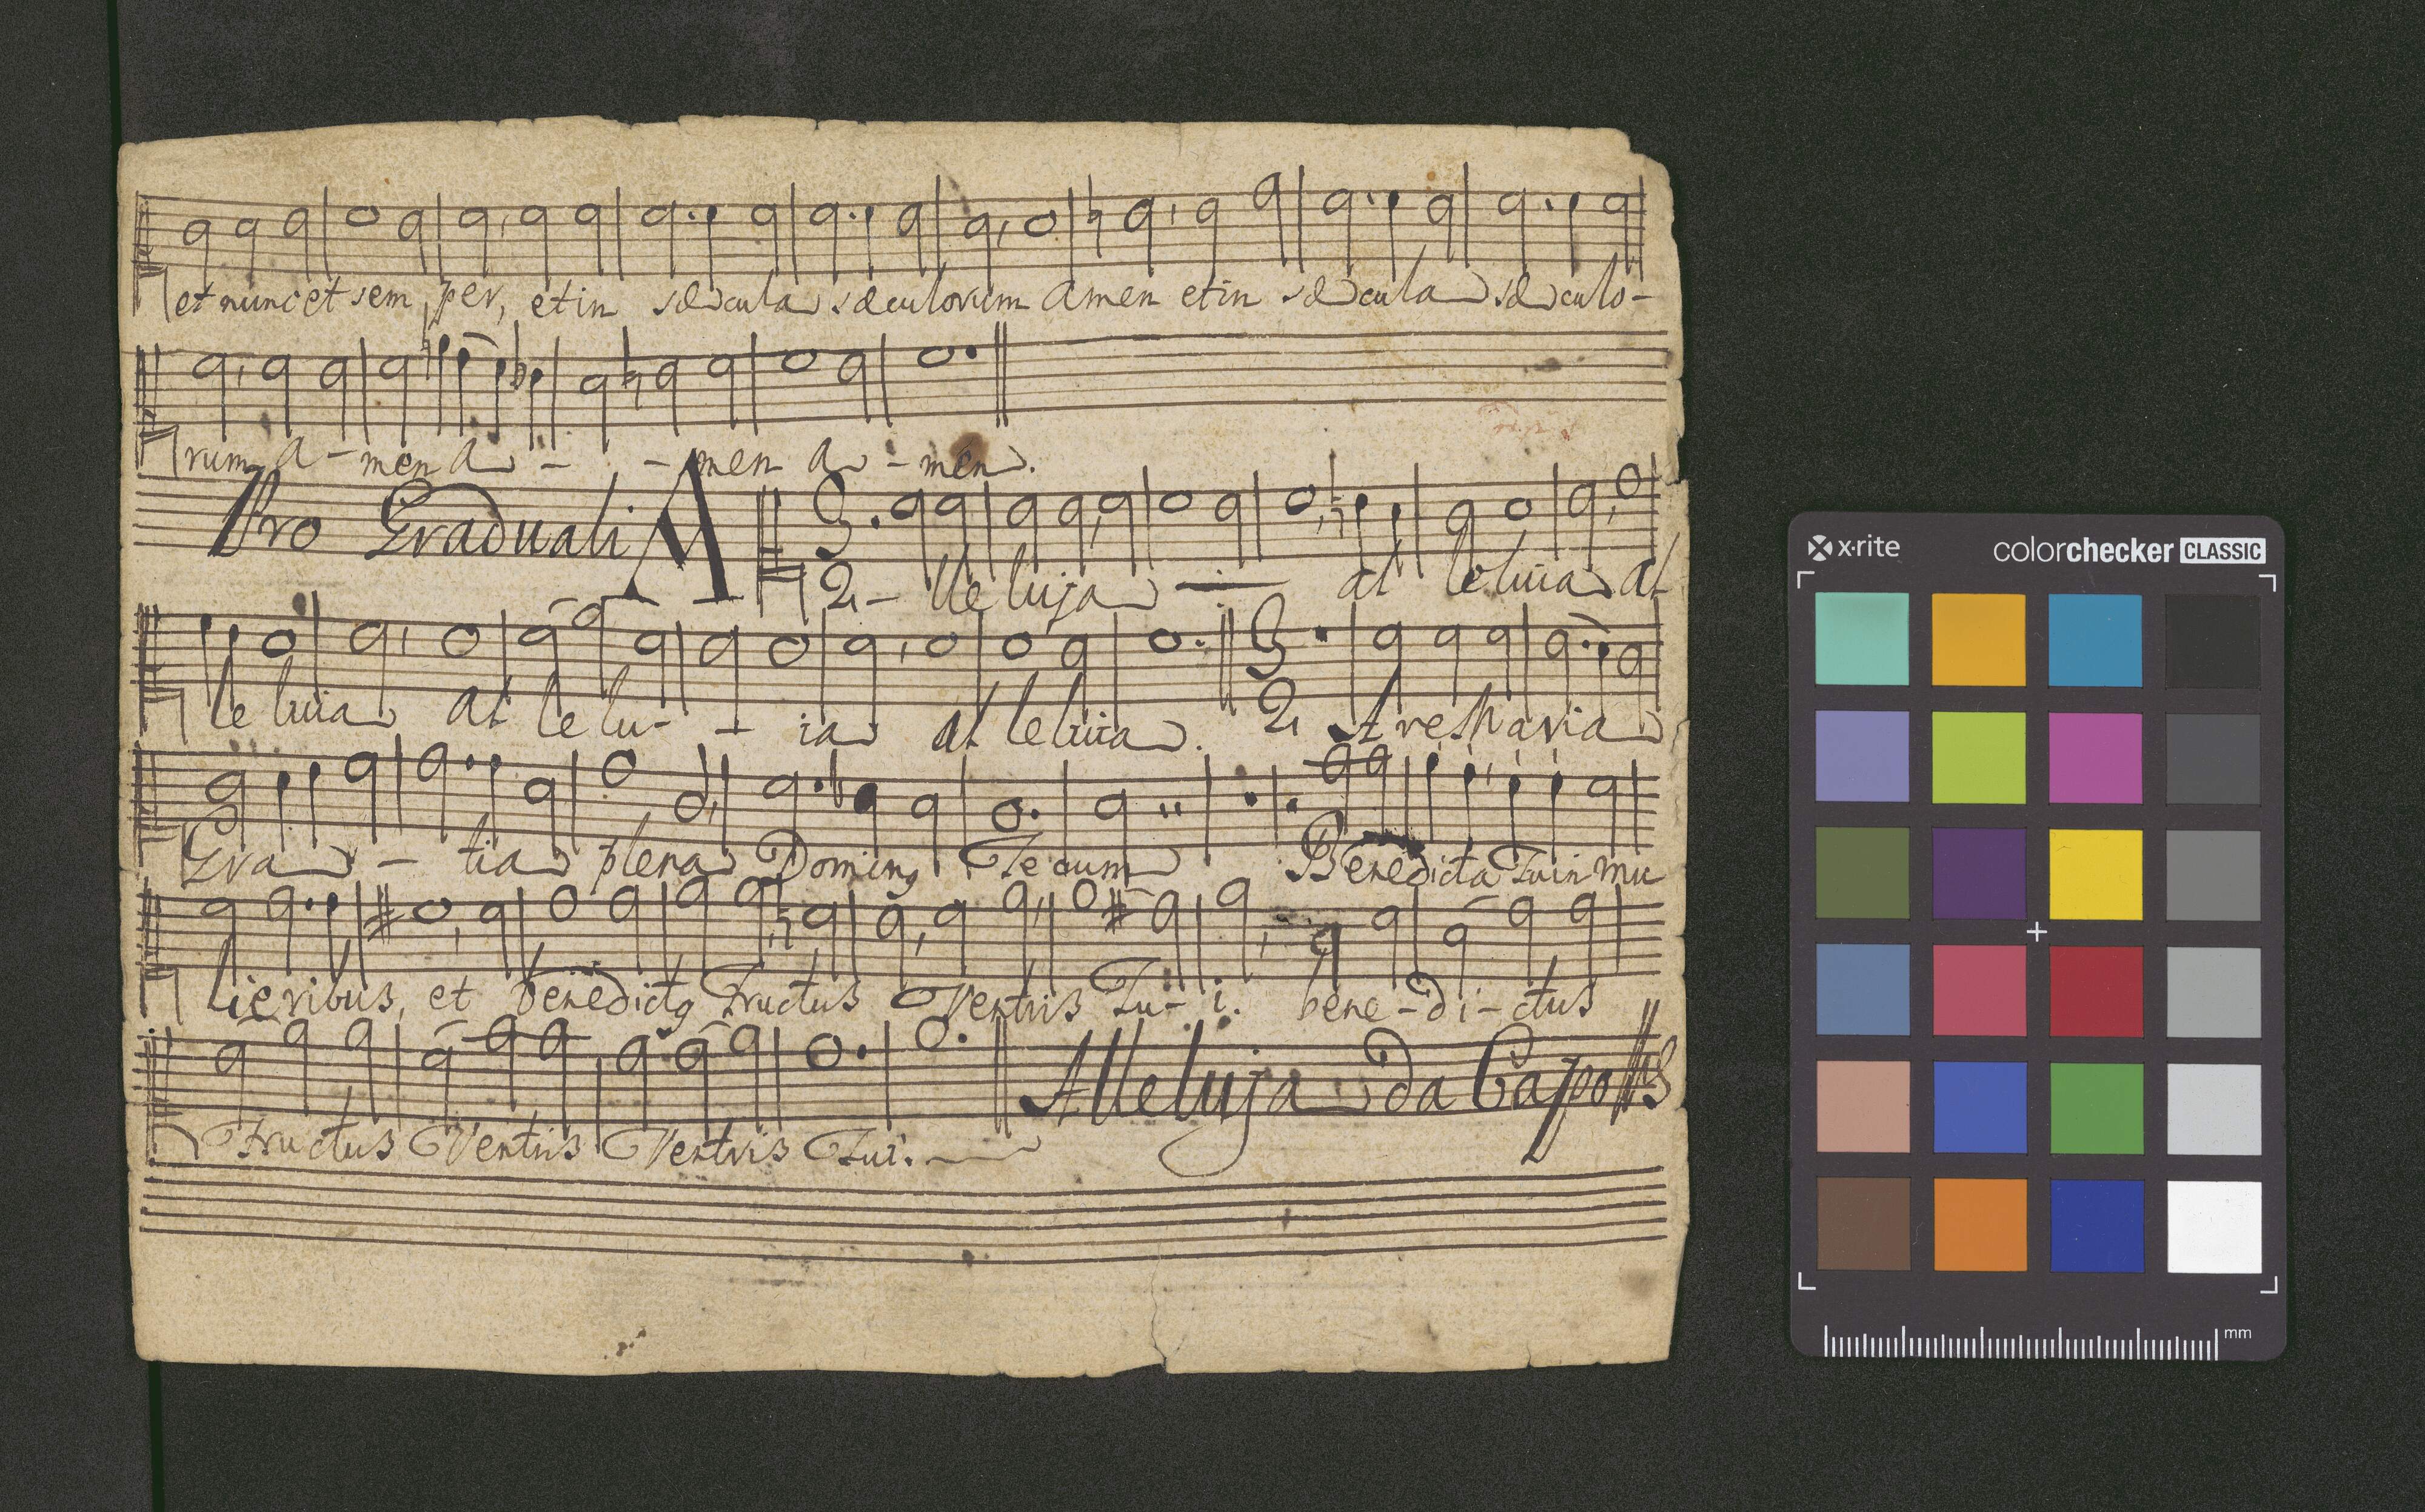 et nunc et sem per, et in sæcula sæculorum amen et in sæcula sæculo-
rum a - men a - - men a - men.
Pro Graduali A 3.
2 - lle luja al leluia al
le luia al le lu - - ia al leluia. 3 2 Ave Maria
Gra - tia plena Doming Tecum Benedicta Tu in mu
lieribus, et benedictg Fructus Ventris Tu - i. bene - di - ctus
Fructus Ventris Ventris Tui.
Alleluja da Capo
x·rite colorchecker CLASSIC
mm